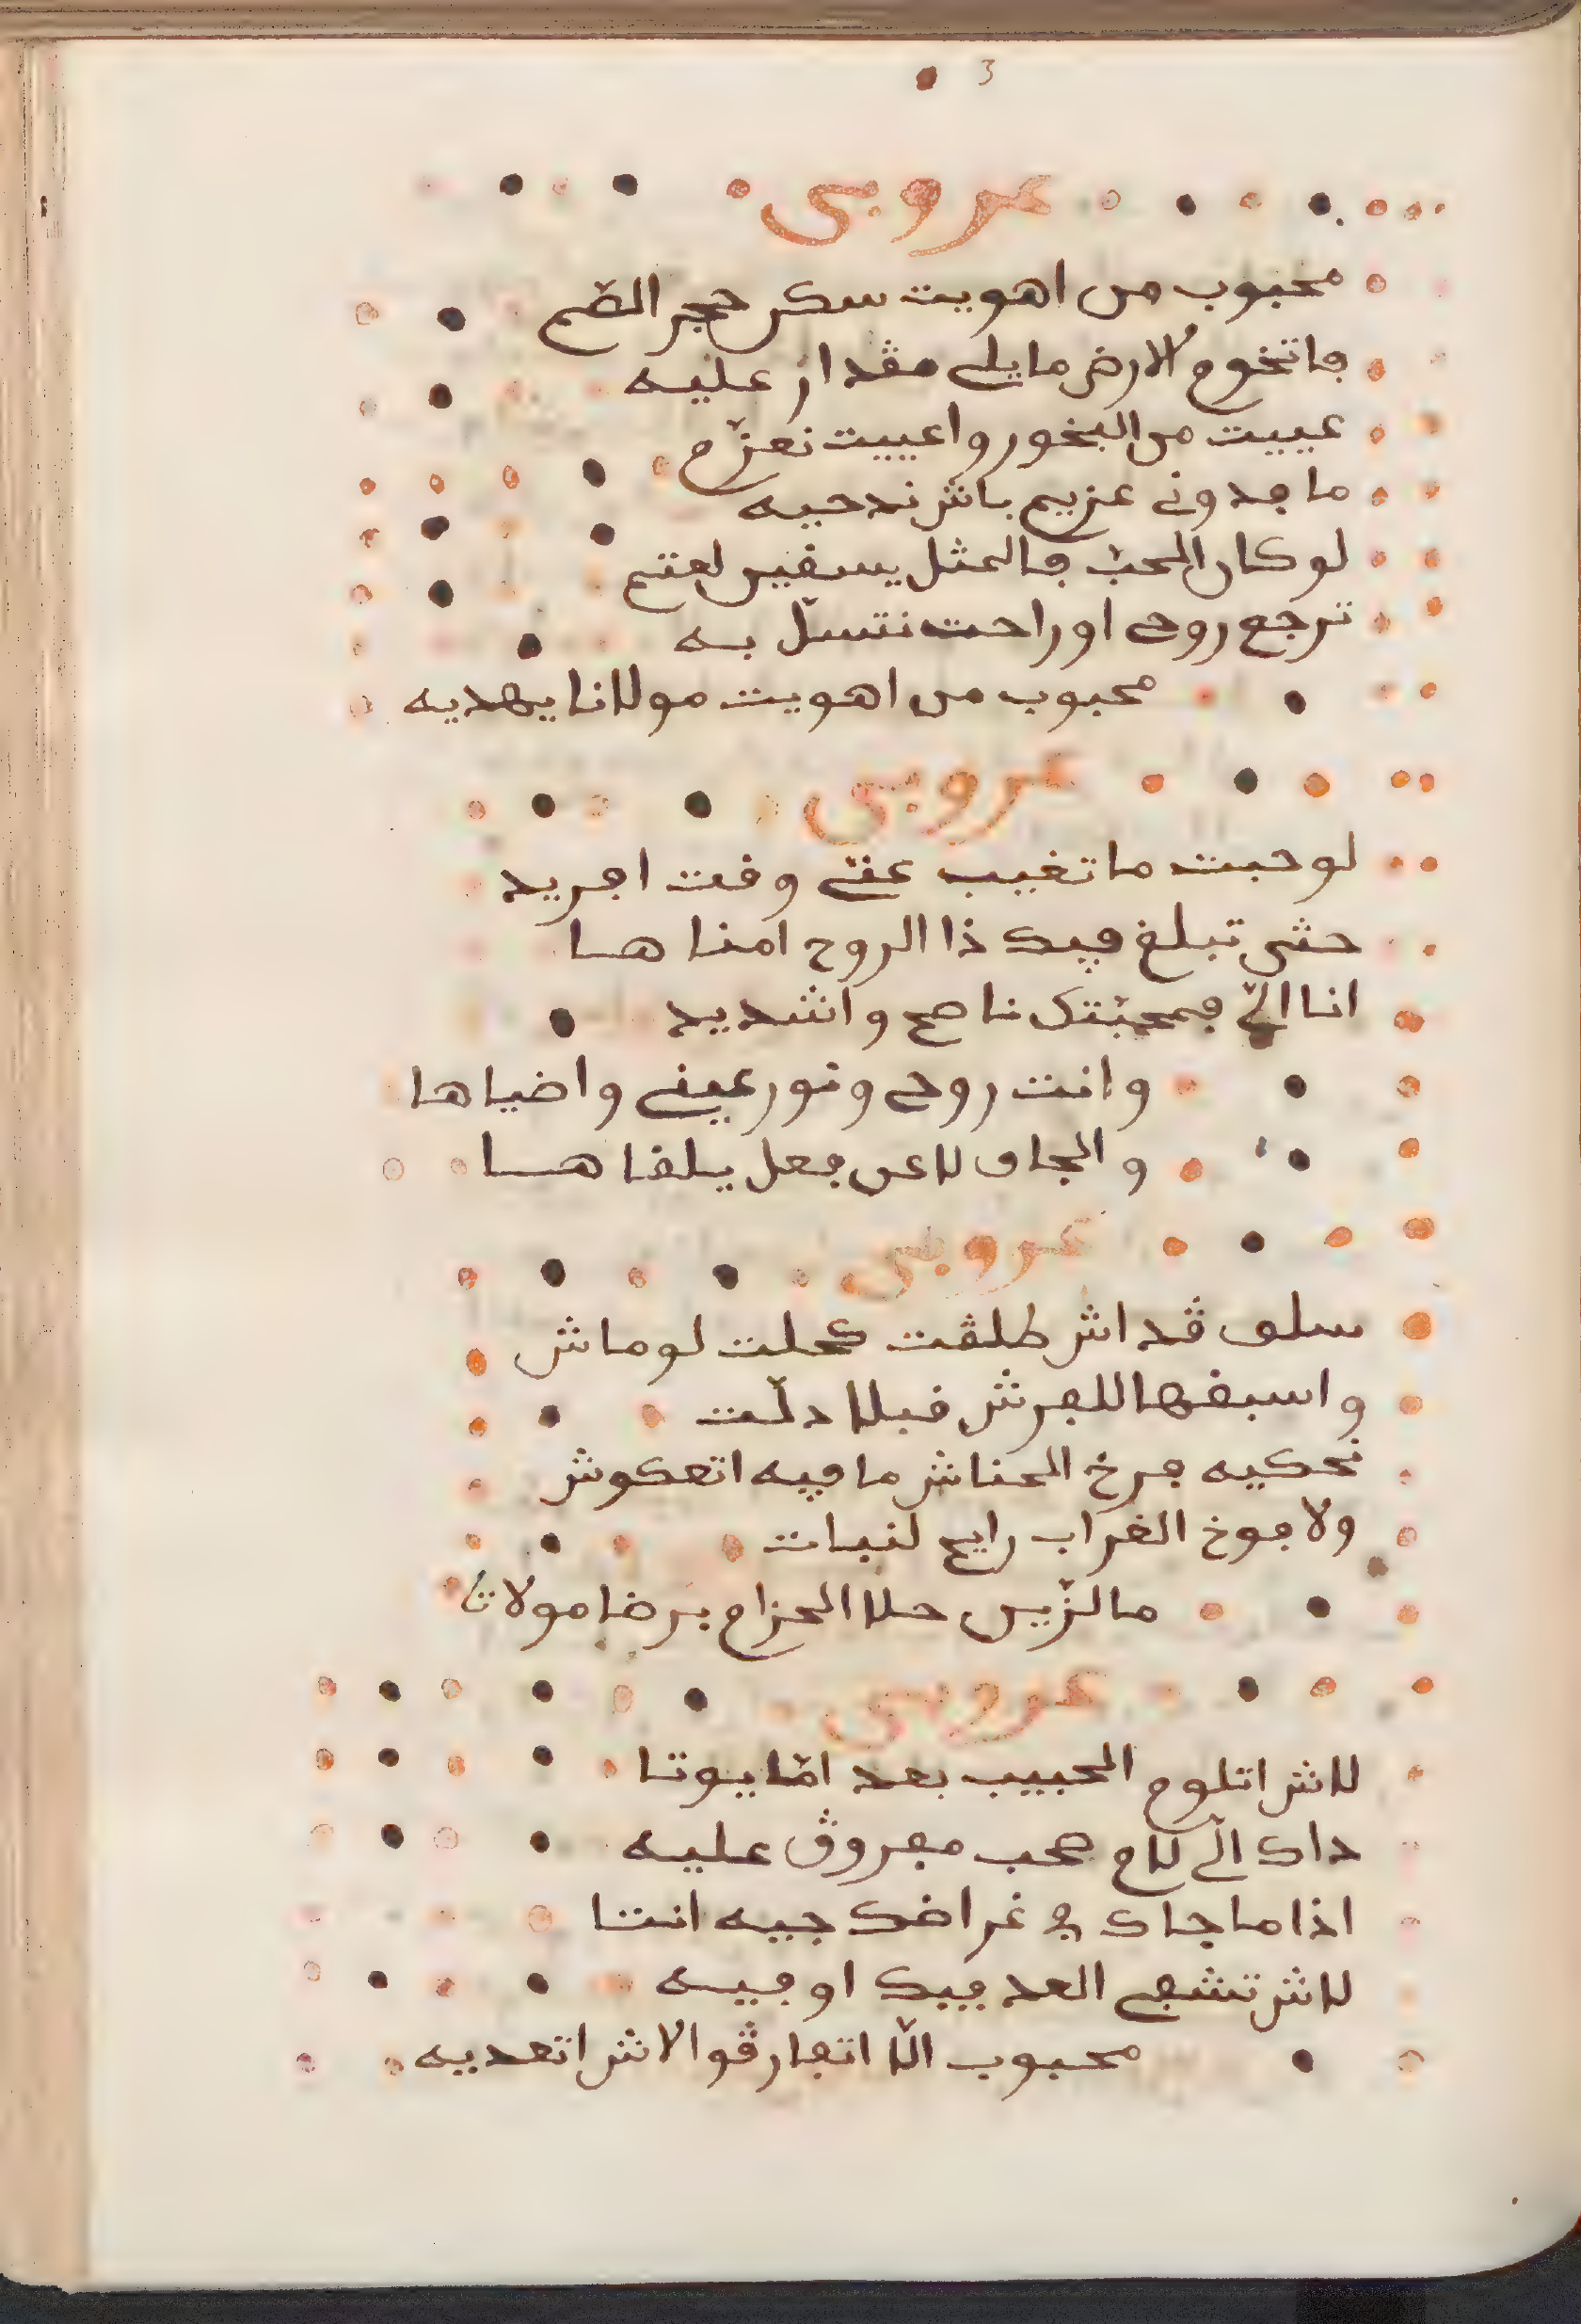 3
عروبي
محبوب من اهويت سكن حجر الصّم
فاتخوم الارض مايلي مڨدار عليه
عييت من البخور واعييت نعزّم
ما فدوني عزيم باش ندحيه
لو كان المحبّ فالمثل يسڧيں لعتم
ترجع روحي اوراحت نتسلّ به
محبوب من اهويت مولانا يهديه
عروبي
لو حبت ماتغيب عنّي وقت افريد
حتّى تبلغ فيك ذا الروح امناها
انا الّي فمحبّتك ناصح واشديد
وانت روحي ونور عيني واضياها
والجاف لاعن فعل يلقاها
عروبي
سلف ڨداش طلڨت كحلت لوماش
واسبقها للفرش قبلا دلّت
نحكيه فرخ الحناش مافيه اتعكوش
ولا فوخ الغراب رايح لنبات
مالزّين حلا الحزام برضا مولات
عروبي
لاش اتلوم الحبيب بعد امّا يوتا
داك الّي لام صحب مفروڨ عليه
اذا ماجاك في غراضك جيه انتا
لاش تشفي العد فيك اوفيه
محبوب الّا اتفارڨو الاش اتعديه